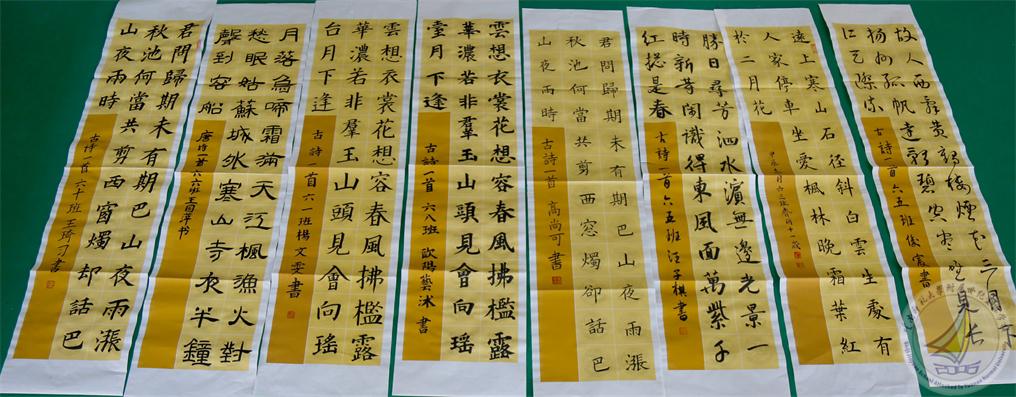 故人西辭黃鶴樓煙花三月下
揚州孤帆遠影碧空盡唯見長
江天際流
古詩一首 六五班 書
遠上寒山石径斜白雲生處有
人家停車坐愛楓林晚霜葉紅
於二月花
勝日尋芳泗水濱無邊光景一
時新等閑識得東風面萬紫千
紅總是春
古詩一首 六五班 汪子棋書
君問歸期未有期巴山夜雨漲
秋池何當共剪西窓燭卻話巴
山夜雨時
古詩一首 高尚可 書
雲想衣裳花想容春風拂檻露
華濃若非羣玉山頭見會向瑤
臺月下逢
古詩一首 六八班 歐陽藝沭 書
雲想衣裳花想容春風拂檻露
華濃若非羣玉山頭見會向瑤
台月下逢
古詩一首 六一班 楊文雯書
月落烏啼霜滿天江楓漁火對
愁眠姑蘇城外寒山寺夜半鐘
聲到客船
唐诗一首 六六班 书
君問歸期未有期巴山夜雨漲
秋池何當共剪西窗燭却話巴
山夜雨時
古詩一首 六十班 書